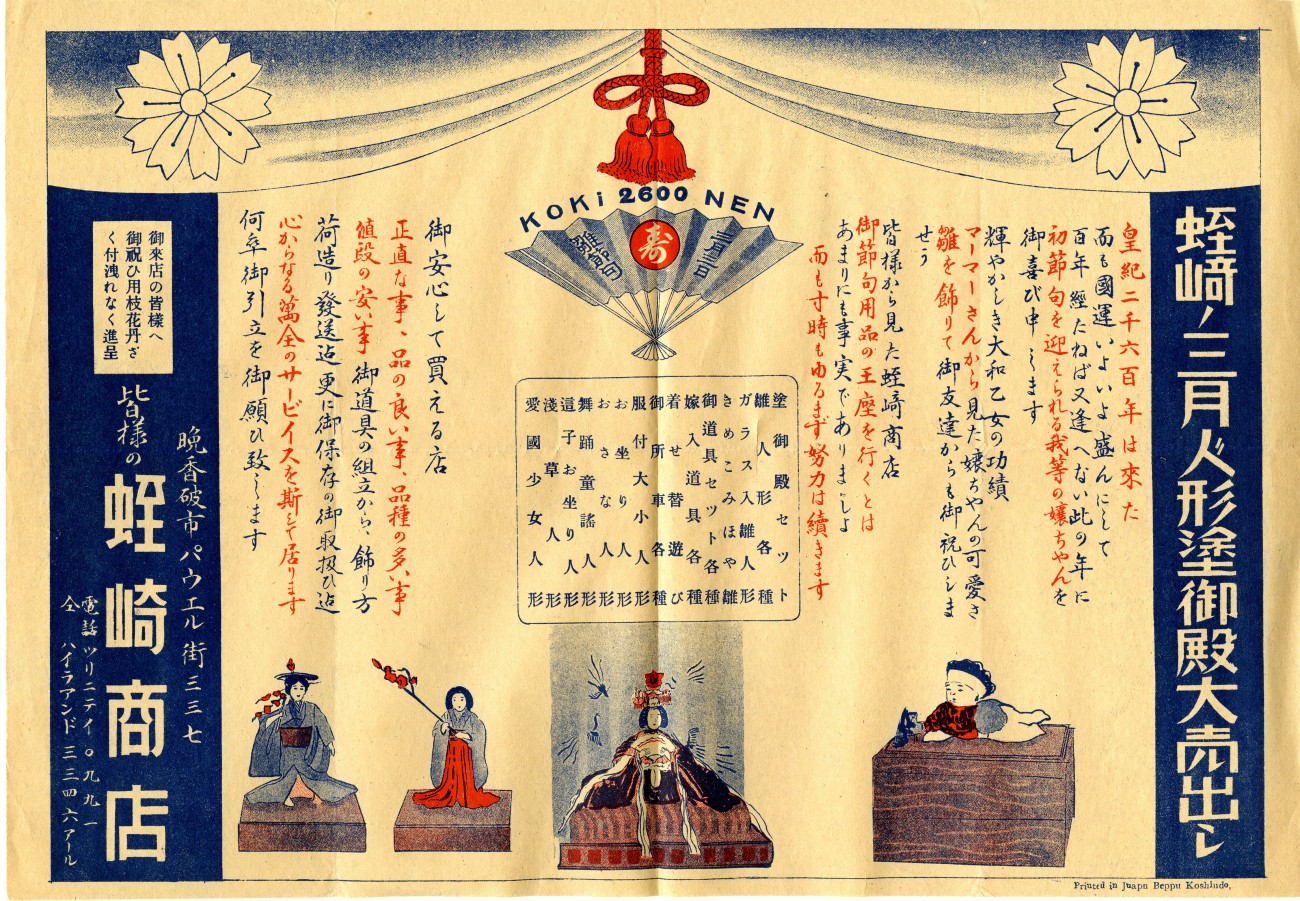 蛭﨑ノ三月人形塗御殿大売出シ
皇紀二千六百年は來た
而も國運いよいよ盛んにして
百年經たねば又逢へない此の年に
初節句を迎えられる我等の孃ちやんを
御喜び申します
輝やかしき大和乙女の功績
マーマーさんから見た孃ちやんの可愛さ
雛を飾りて御友達からも御祝ひしま
せう
皆様から見た蛭﨑商店
御節句用品の王座を行くとは
あまりにも事実でありましよ
而も寸時もゆるまず努力は續きます
KOKi 2600 NEN
三月三日
寿
雛節句
塗御殿セット
雛人形各種
ガラス入雛人形
きめこみほや雛
御道具セット各種
嫁入道具各種
着せ替遊び
御所車各種
服付大小人形
お坐り人形
おさな人形
舞踊童謠人形
這子お坐り人形
淺草人形
愛國少女人形
御安心して買える店
正直な事、品の良い事、品種の多い事
値段の安い事 御道具の組立から、飾り方
荷造り發送迠更に御保存の御取扱ひ迠
心からなる萬全のサービイスを斯して居ります
何卒御引立を御願ひ致します
御來店の皆様へ
御祝ひ用枝花丹ざ
く付洩れなく進呈
晩香破市パウエル街三三七
皆様の 蛭崎商店
電話 ツリニテイ 〇九九一
仝 ハイラアンド 三三四六アール
Printed in Juapn Beppu Koshindo,